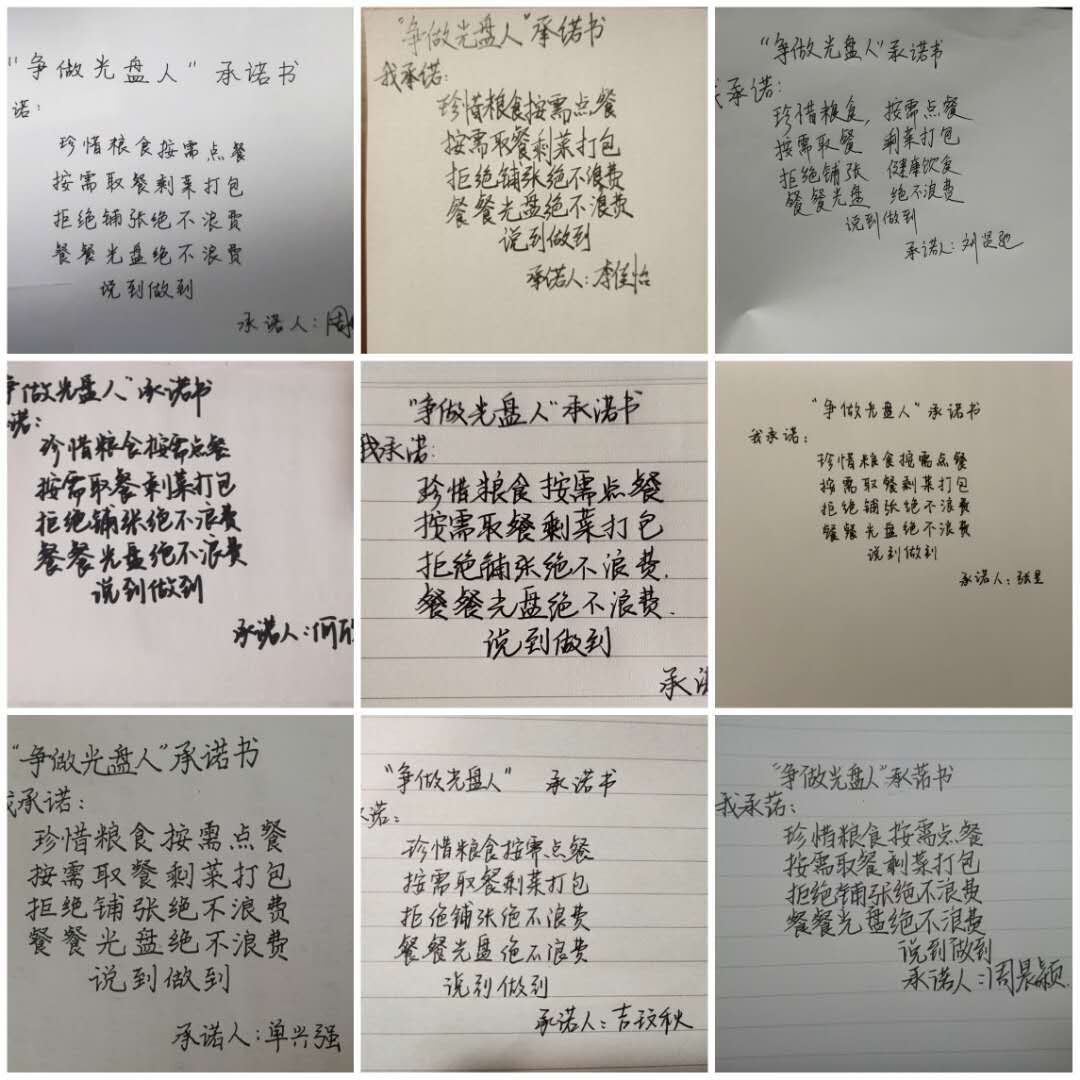 "争做光盘人"承诺书
诺：
珍惜粮食按需点餐
按需取餐剩菜打包
拒绝铺张绝不浪费
餐餐光盘绝不浪费
说到做到
承诺人：周
"争做光盘人"承诺书
我承诺：
珍惜粮食按需点餐
按需取餐剩菜打包
拒绝铺张绝不浪费
餐餐光盘绝不浪费
说到做到
承诺人：李佳怡
"争做光盘人"承诺书
我承诺：
珍惜粮食，按需点餐
按需取餐 剩菜打包
拒绝铺张 健康饮食
餐餐光盘 绝不浪费
说到做到
承诺人：刘
争做光盘人"承诺书
诺：
珍惜粮食按需点餐
按需取餐剩菜打包
拒绝铺张绝不浪费
餐餐光盘绝不浪费
说到做到
承诺人：何
"争做光盘人"承诺书
我承诺：
珍惜粮食按需点餐
按需取餐剩菜打包
拒绝铺张绝不浪费.
餐餐光盘绝不浪费.
说到做到
承诺
"争做光盘人"承诺书
我承诺：
珍惜粮食按需点餐
按需取餐剩菜打包
拒绝铺张绝不浪费
餐餐光盘绝不浪费
说到做到
承诺人：张昱
"争做光盘人"承诺书
我承诺：
珍惜粮食按需点餐
按需取餐剩菜打包
拒绝铺张绝不浪费
餐餐光盘绝不浪费
说到做到
承诺人：单兴强
"争做光盘人" 承诺书
诺：
珍惜粮食按需点餐
按需取餐剩菜打包
拒绝铺张绝不浪费
餐餐光盘绝不浪费
说到做到
承诺人：吉玟秋
"争做光盘人"承诺书
我承诺：
珍惜粮食按需点餐
按需取餐剩菜打包
拒绝铺张绝不浪费
餐餐光盘绝不浪费
说到做到
承诺人：周晨颖